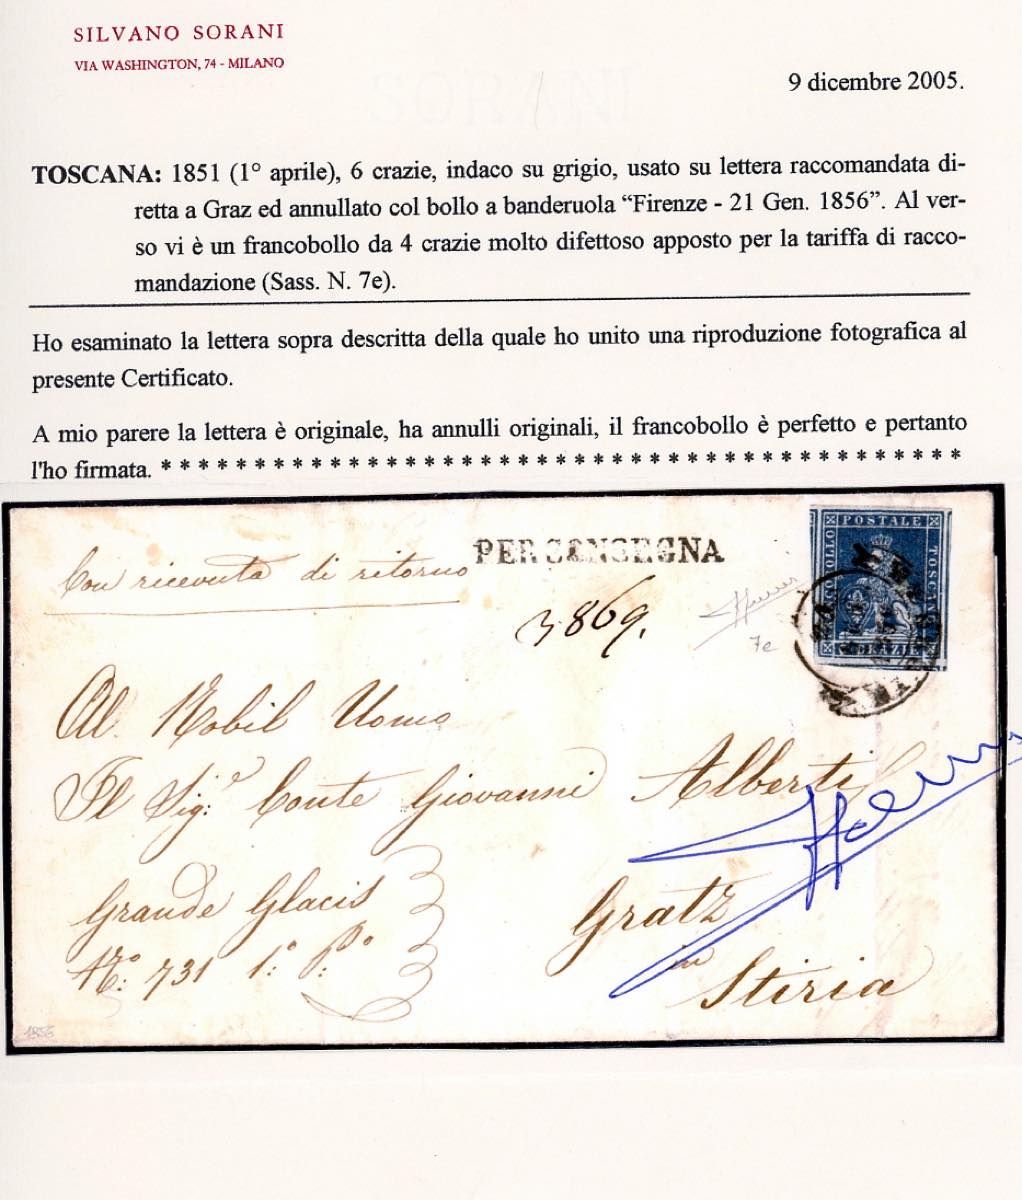 SILVANO SORANI
VIA WASHINGTON, 74 - MILANO
9 dicembre 2005.
TOSCANA: 1851 (1° aprile), 6 crazie, indaco su grigio, usato su lettera raccomandata di-
retta a Graz ed annullato col bollo a banderuola “Firenze - 21 Gen. 1856”. Al ver-
so vi è un francobollo da 4 crazie molto difettoso apposto per la tariffa di racco-
mandazione (Sass. N. 7e).
Ho esaminato la lettera sopra descritta della quale ho unito una riproduzione fotografica al
presente Certificato.
A mio parere la lettera è originale, ha annulli originali, il francobollo è perfetto e pertanto
l'ho firmata. * * * * * * * * * * * * * * * * * * * * * * * * * * * * * * * * * * * * * * * * * * *
Con ricevuta di ritorno
PER CONSEGNA
3869.
7e
FRANCOBOLLO POSTALE TOSCANO
6 CRAZIE
Al Nobil Uomo
Il Sig.e Conte Giovanni Alberti
Grande Glacis
No: 731 1° P.o
Gratz
in
Stiria
1856